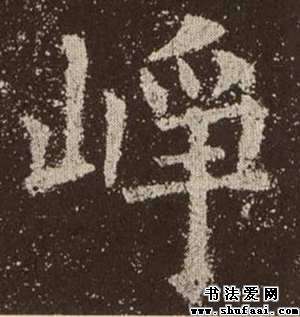 崢
书法爱网
www.shufaai.com